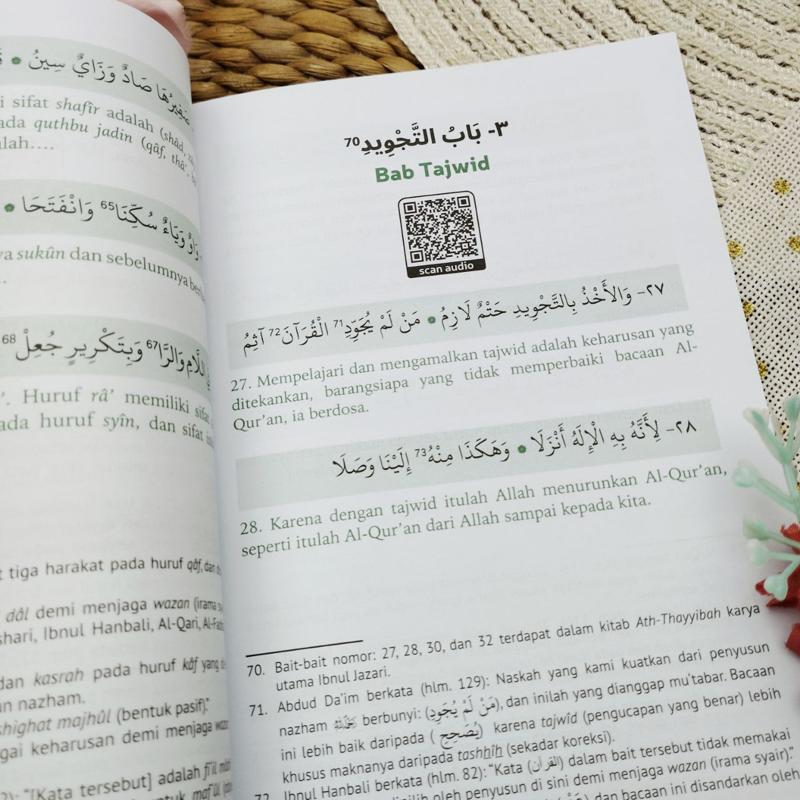 صَفِيرُهَا صَادٌ وَزَايٌ سِينُ •
i sifat shafîr adalah (shâd,
ada quthbu jadin (qâf, thâ',
lah....
وَاوٌ وَيَاءٌ سُكِّنَا65 وَانْفَتَحَا •
ya sukûn dan sebelumnya
اللَّامِ وَالرَّا67 وَبِتَكْرِيرٍ جُعِلْ 68
'. Huruf râ' memiliki sifat
ada huruf syîn, dan sifat
t tiga harakat pada huruf qâf, dan
dâl demi menjaga wazan (irama
shari, Ibnul Hanbali, Al-Qari,
dan kasrah pada huruf kâf yang
un nazham.
shighat majhûl (bentuk pasif)."
gai keharusan demi menjaga
2): "[Kata tersebut] adalah fi'il
٣- بَابُ التَّجْوِيدِ70
Bab Tajwid
scan audio
٢٧- وَالأَخْذُ بِالتَّجْوِيدِ حَتْمٌ لَازِمُ • مَنْ لَمْ يُجَوِّدِ71 الْقُرَآنَ72 آثِمُ
27. Mempelajari dan mengamalkan tajwid adalah keharusan yang
ditekankan, barangsiapa yang tidak memperbaiki bacaan Al-
Qur'an, ia berdosa.
٢٨- لِأَنَّهُ بِهِ الْإِلَهُ أَنْزَلَا • وَهَكَذَا مِنْهُ73 إِلَيْنَا وَصَلَا
28. Karena dengan tajwid itulah Allah menurunkan Al-Qur'an,
seperti itulah Al-Qur'an dari Allah sampai kepada kita.
70. Bait-bait nomor: 27, 28, 30, dan 32 terdapat dalam kitab Ath-Thayyibah karya
utama Ibnul Jazari.
71. Abdud Da'im berkata (hlm. 129): Naskah yang kami kuatkan dari penyusun
nazham berbunyi: (مَنْ لَمْ يُجَوِّدِ), dan inilah yang dianggap mu'tabar. Bacaan
ini lebih baik daripada (يُصَحِحِ) karena tajwîd (pengucapan yang benar) lebih
khusus maknanya daripada tashhîh (sekadar koreksi).
72. Ibnul Hanbali berkata (hlm. 82): "Kata (القرآن) dalam bait tersebut tidak memakai
oleh penyusun di sini demi menjaga wazan (irama syair)."
dan bacaan ini disandarkan oleh